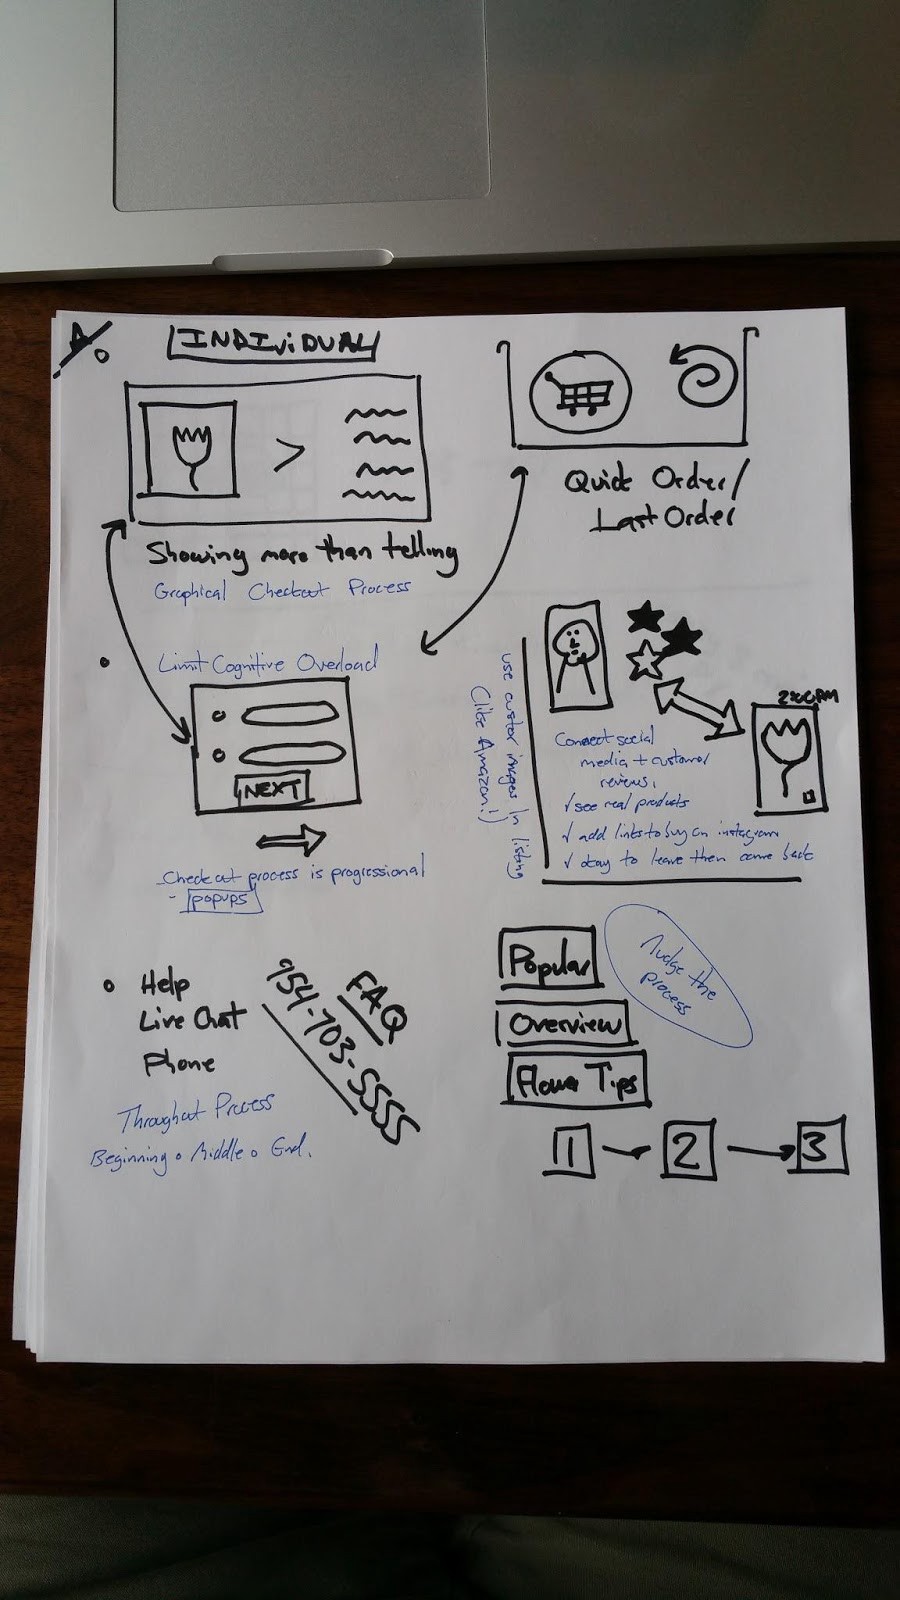 A.
INDIViDUAL
Showing more than telling
Graphical Checkout Process
Quick Order/
Last Order
Limit Cognitive Overload
NEXT
Checkout process is progressional
- popups
use custor images in listing
(like Amazon!)
2:00PM
Connect social
media + customer
reviews.
✓ see real products
✓ add links to buy on instagram
✓ okay to leave then come back
Help
Live Chat
Phone
FAQ
954-703-5555
Throughout Process
Beginning • Middle • End.
Popular
Overview
Flower Tips
Nudge the
process
1
2
3